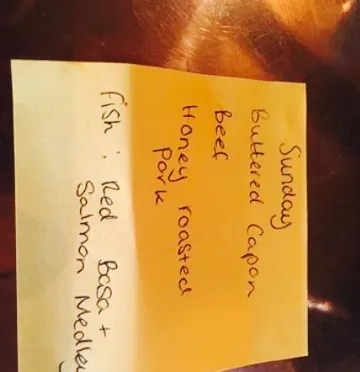 Sunday
Buttered Capon
Beef
Honey roasted
Pork
Fish : Red Basa +
Salmon Medley